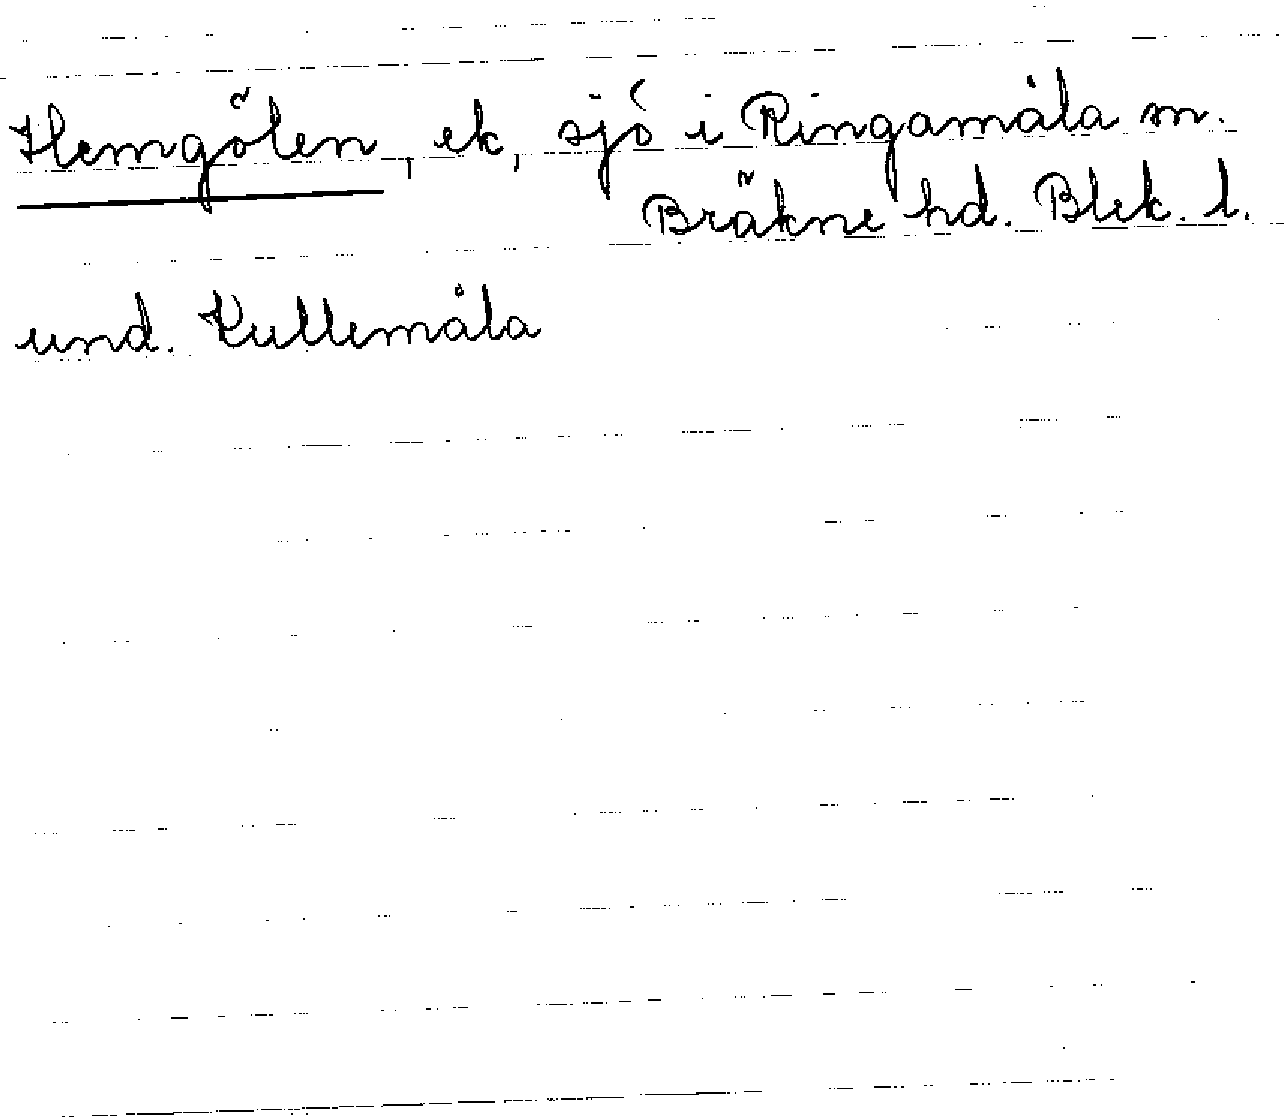 Hemgölen, ek, sjö i Ringamåla sn.
Bräkne hd. Blek. l.
und. Kullemåla